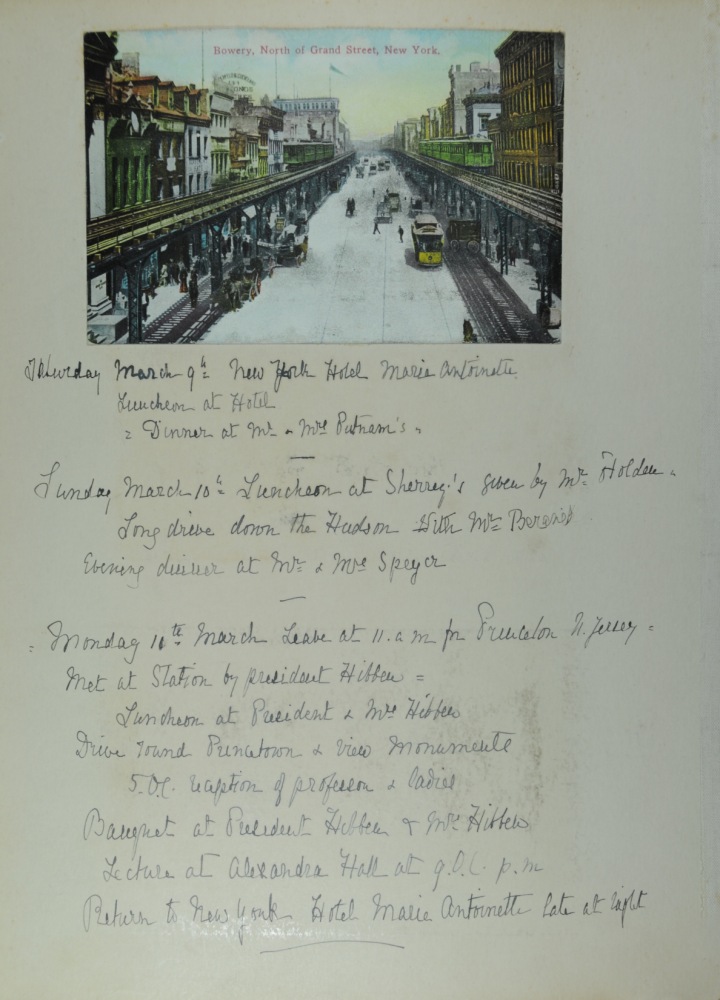 Bowery, North of Grand Street, New York.
Saturday March 9th New York Hotel Maria Antoinette.
Luncheon at Hotel
= Dinner at Mr & Mrs Putnam's =
Sunday March 10th Luncheon at Sherrey's given by Mr Holden.
Long drive down the Hudson With Mr
Evening dinner at Mr & Mrs Speyer
= Monday 11th March Leave at 11. a m for Princeton N. Jersey =
Met at Station by president Hibben =
Luncheon at President & Mrs Hibben
Drive round Princetown & view Monuments
5.O.C. reception of professors & ladies
Banquet at President Hibben & Mrs Hibben
Lecture at Alexandra Hall at 9.O.C. p.m
Return to New York Hotel Maria Antoinette late at night